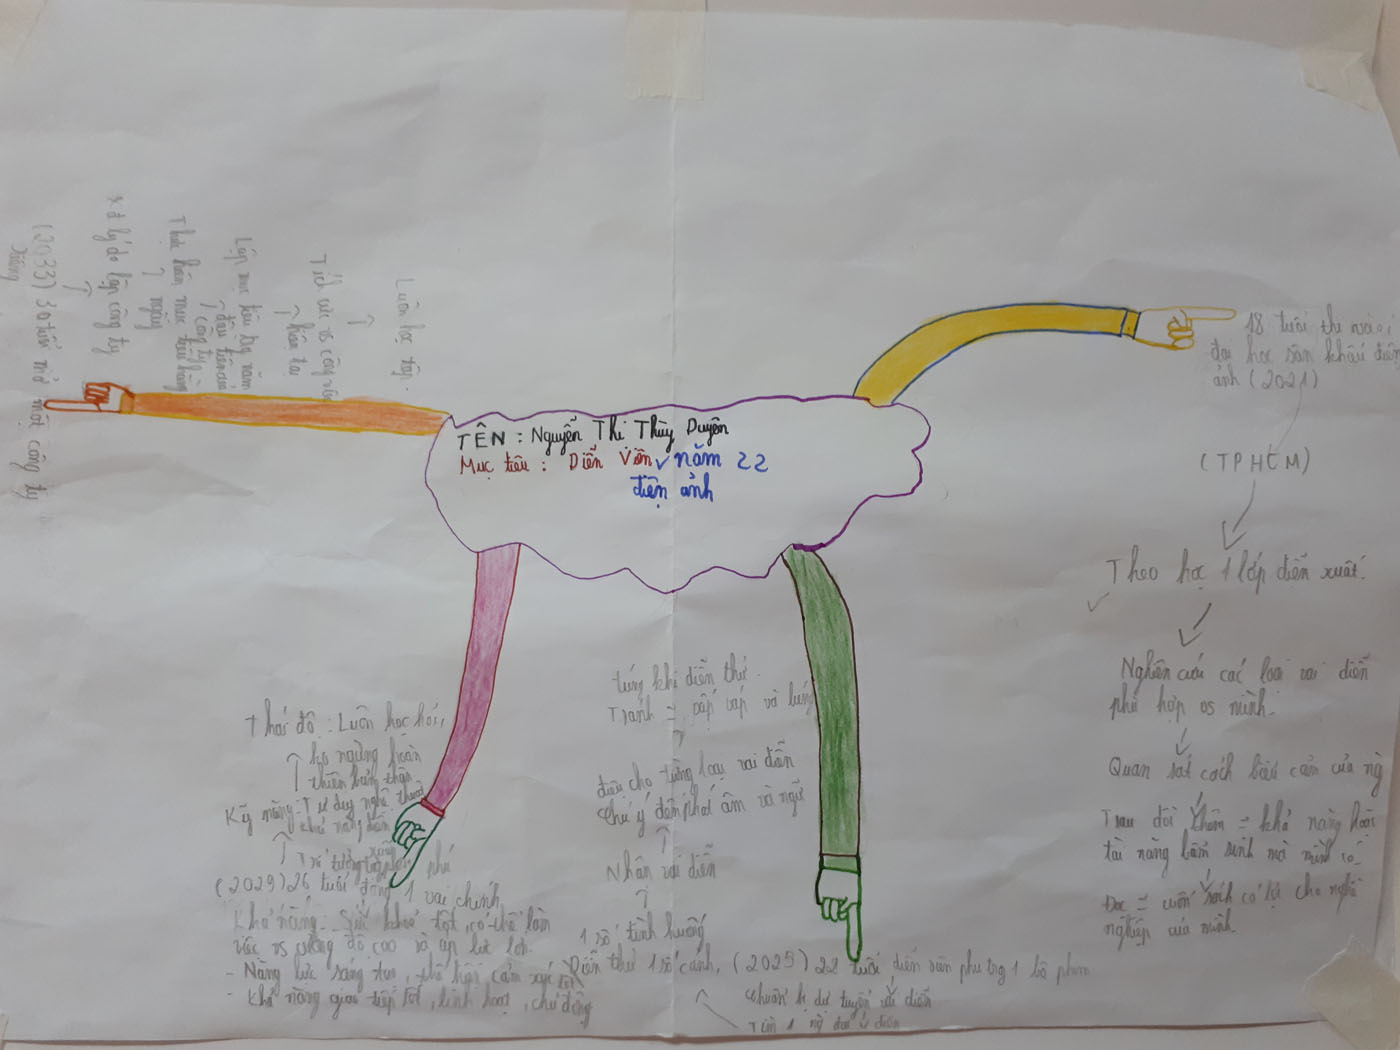 TÊN : Nguyễn Thị Thùy Duyên
Mục tiêu : Diễn Viên năm 22
điện ảnh
18 tuổi thi vào
đại học sân khấu điện
ảnh (2021)
(TPHCM)
Theo học 1 lớp diễn xuất.
Nghiên cứu các loại vai diễn
phù hợp vs mình.
Quan sát cách biểu cảm của ng
Trau dồi thêm = khả năng hoặc
tài năng bẩm sinh mà mình có
Đọc = cuốn sách có lợi cho nghề
nghiệp của mình
từng khi diễn thử.
Tránh = vấp váp và lúng
điệu cho từng loại vai diễn
chú ý đến phát âm và ngữ
Nhân vai diễn
1 số tình huống
Diễn thử 1 số cảnh. (2025) 22 tuổi diễn viên phụ trg 1 bộ phim
chuẩn bị dự tuyển vai diễn
Tìm 1 ng
Thái độ : Luôn học hỏi,
ko ngừng hoàn
thiện bản thân
Kỹ năng : Tư duy nghệ thuật
khả năng diễn
xuất
Trí tưởng tượng phú
(2029) 26 tuổi đóng 1 vai chính
Khả năng : Sức khoẻ tốt, có thể làm
việc vs cường độ cao và áp lực lớn.
- Năng lực sáng tạo, thể hiện cảm xúc tốt
- Khả năng giao tiếp tốt, linh hoạt, chủ động
Luôn học tập.
Tích cực vs công việc
hiện tại
Lập mục tiêu hg năm
đầu tiên của
công ty
Thực hiện mục tiêu hàng
ngày
Xđ lý do lập công ty
(2033) 30 tuổi mở một công ty
riêng